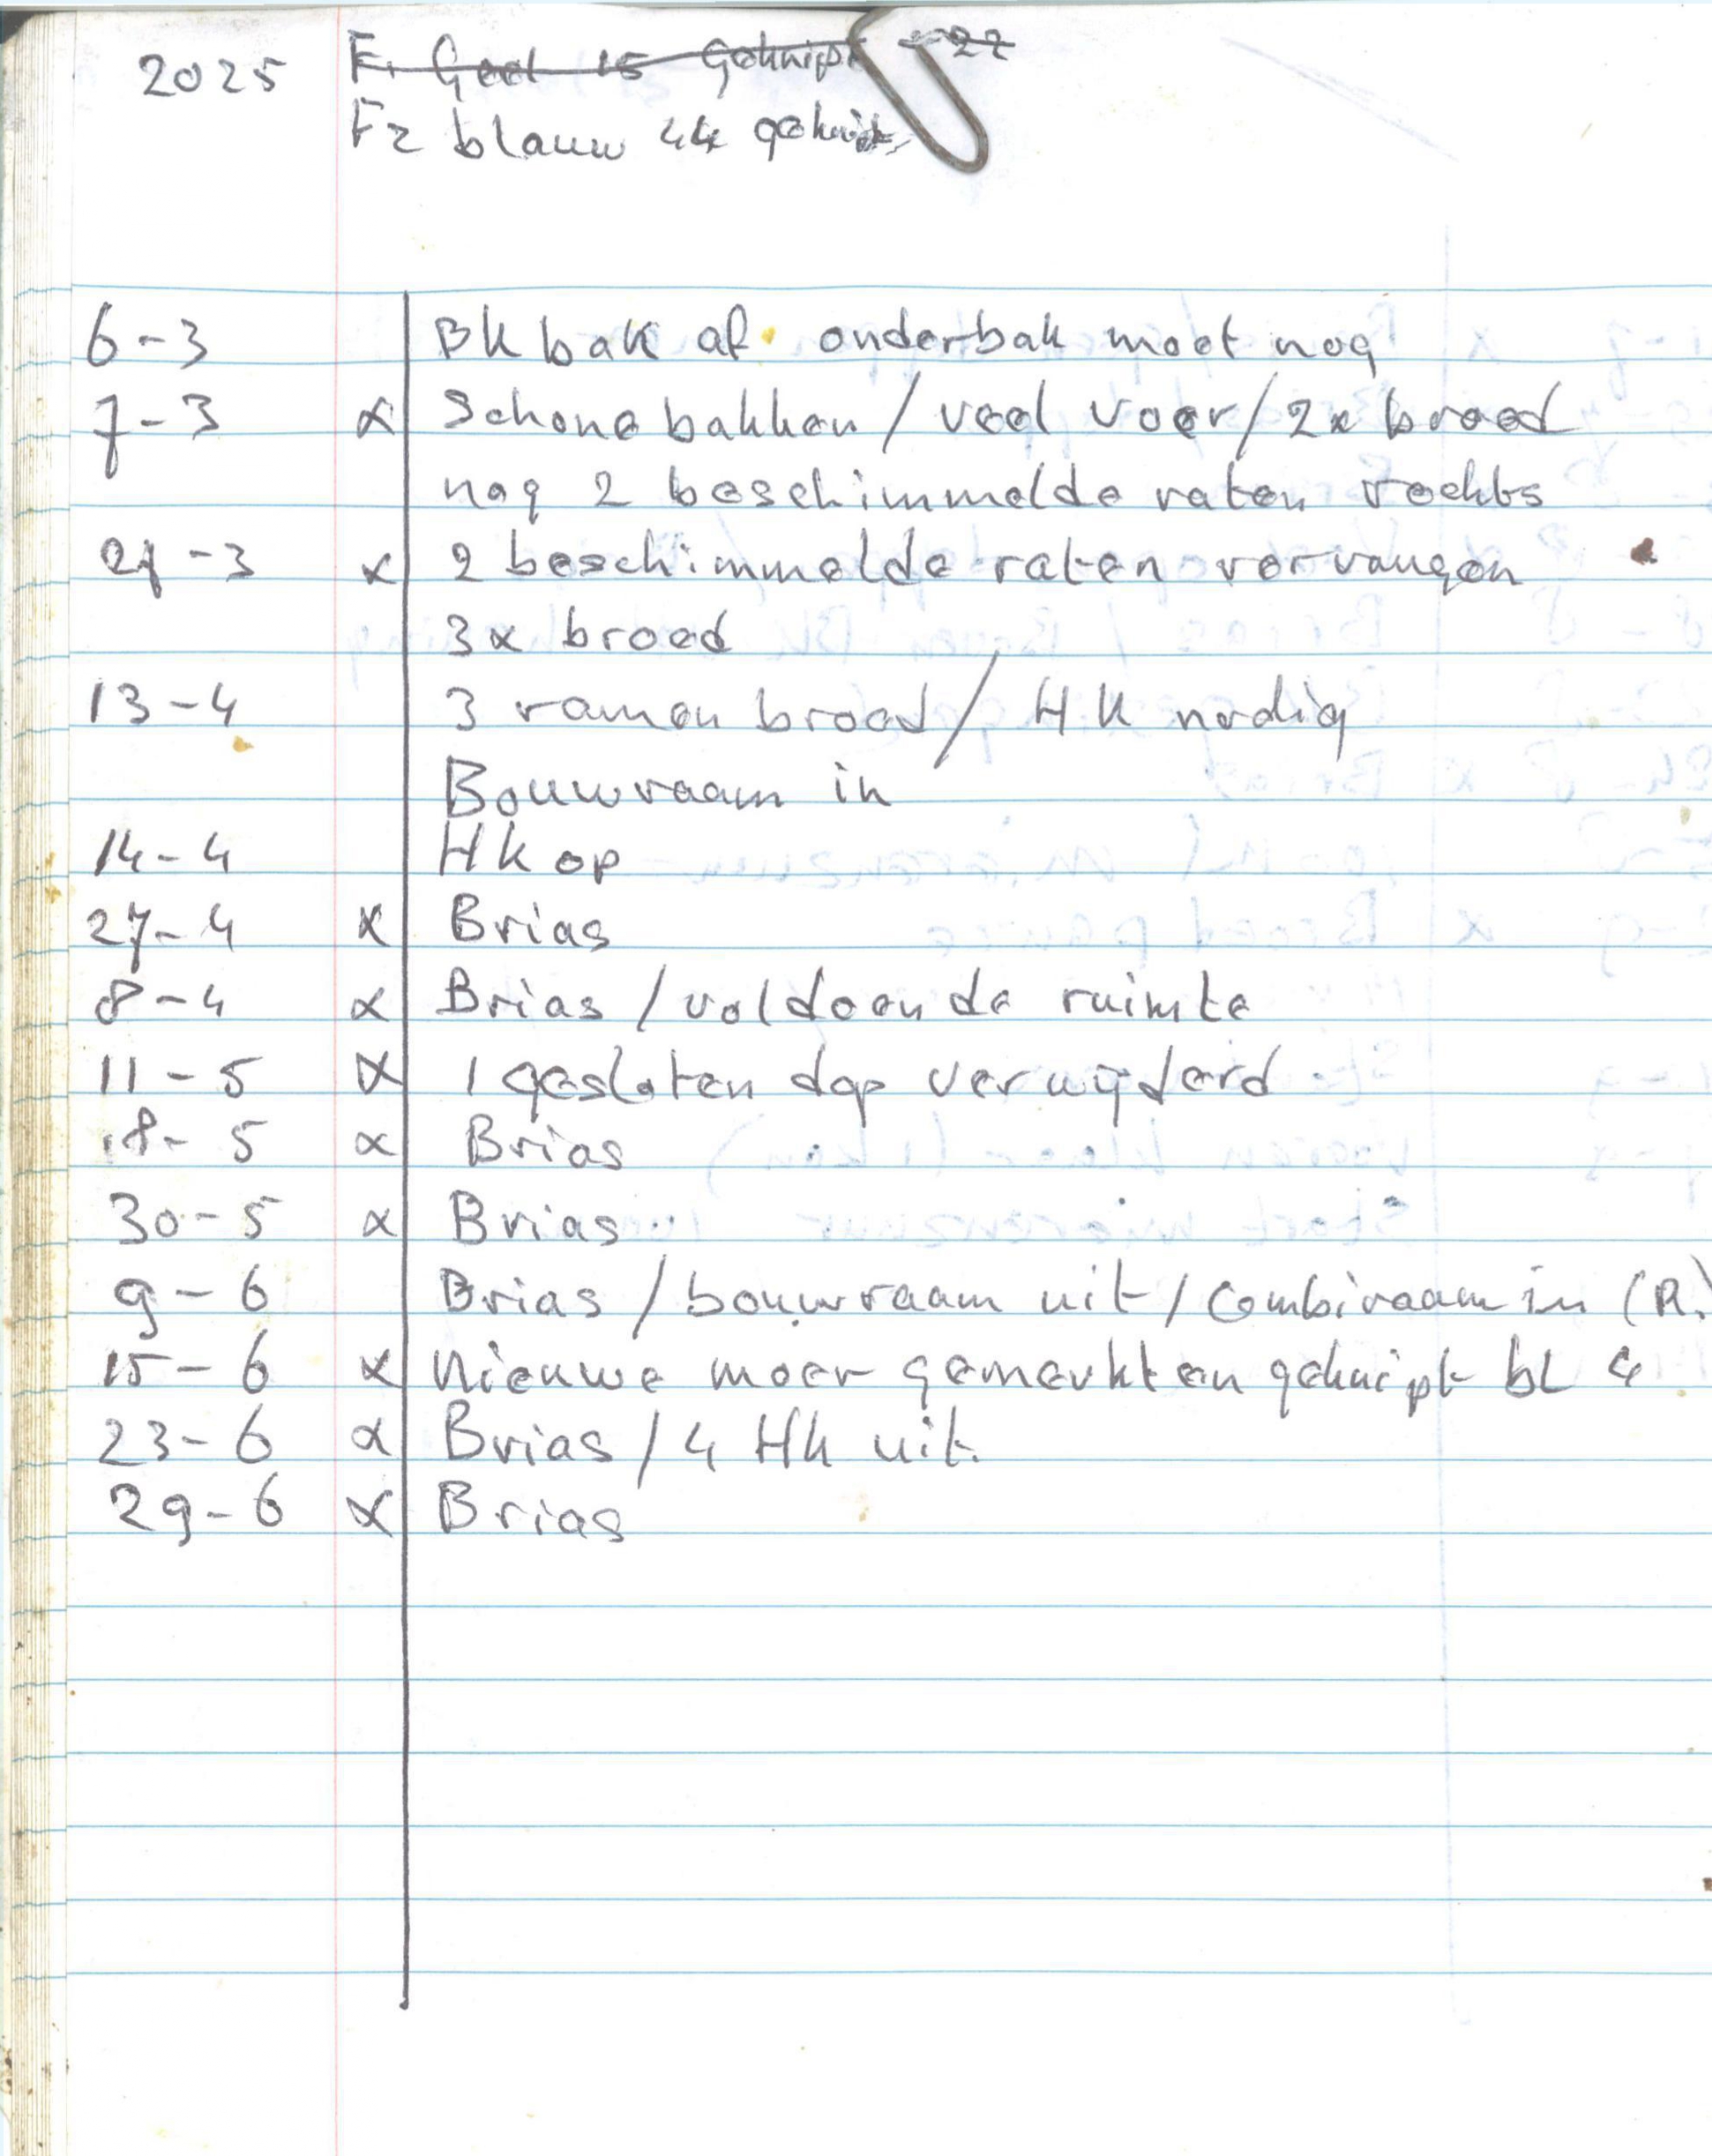 2025 F1 Geel 15 geknipt 22
F2 blauw 44 geknipt
6-3 BK bak af. onderbak moet nog
7-3 x Schone bakken / veel voer / 2x broed
nog 2 beschimmelde raten rechts
21-3 x 2 beschimmelde raten vervangen
3x broed
13-4 3 ramen broed / HK nodig
Bouwraam in
14-4 HK op
27-4 x Brias
8-4 x Brias / voldoende ruimte
11-5 x 1 gesloten dop verwijderd
18-5 x Brias
30-5 x Brias
9-6 Brias / bouwraam uit / Combiraam in (R.)
15-6 x Nieuwe moer gemerkt en geknipt bL 4
23-6 x Brias / 4 HK uit.
29-6 x Brias